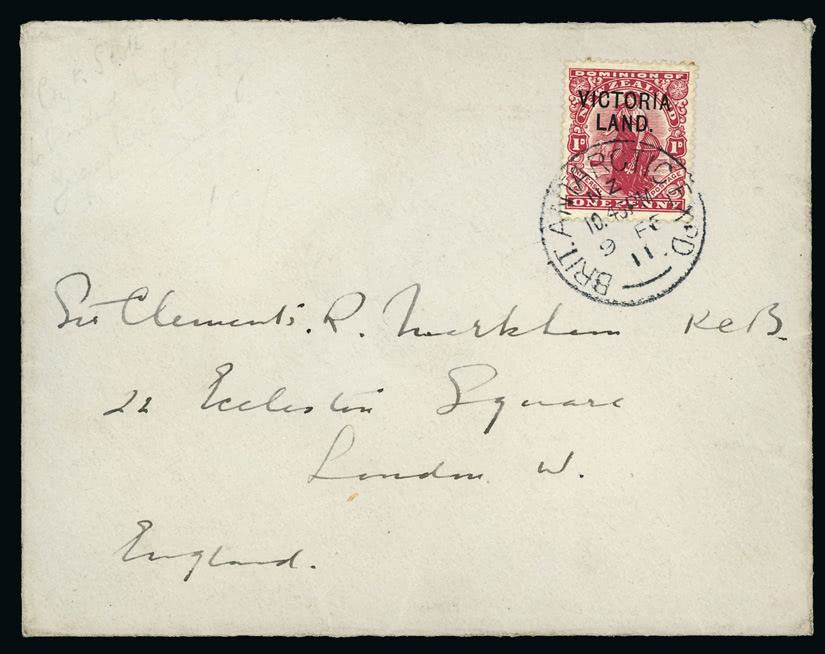 DOMINION OF
NEW ZEALAND
VICTORIA
LAND.
1D 1D
POSTAGE
ONE PENNY
BRIT. ANTARCTIC EXPD
10.45PM
9 FE
11
Sir Clements. R. Markham KCB.
22 Eccleston Square
London W.
England.